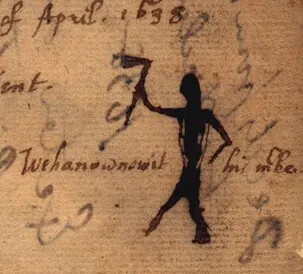 of April. 1638
ent.
Wehanownowit his mke.